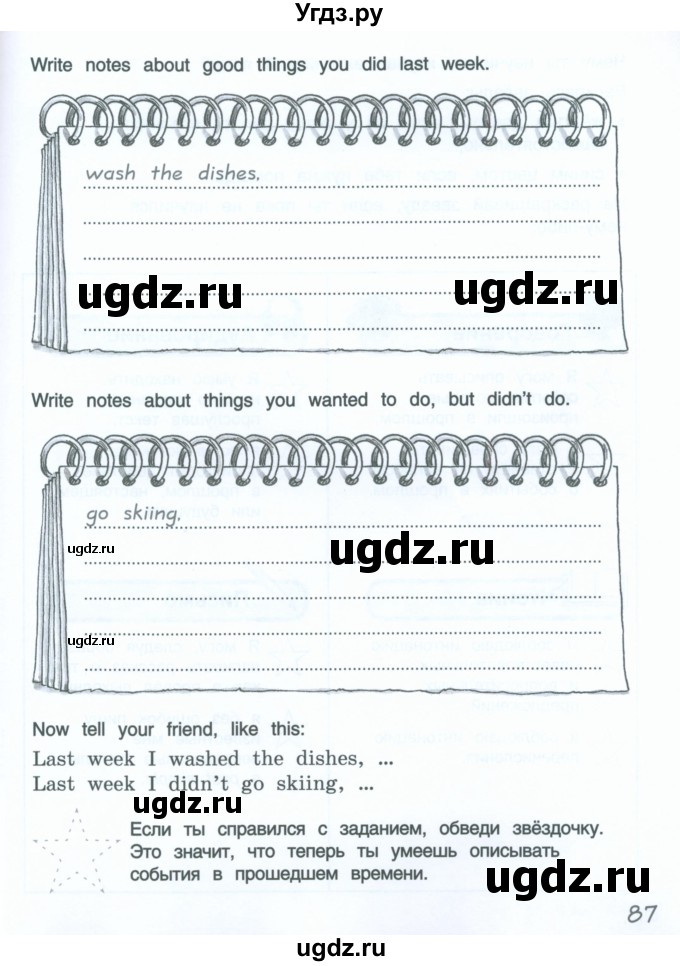 Угдз.ру
Write notes about good things you did last week.
wash the dishes,
ugdz.ru
ugdz.ru
Write notes about things you wanted to do, but didn't do.
go skiing,
ugdz.ru
ugdz.ru
ugdz.ru
Now tell your friend, like this:
Last week I washed the dishes, ...
Last week I didn't go skiing, ...
ugdz.ru
Если ты справился с заданием, обведи звёздочку.
Это значит, что теперь ты умеешь описывать
события в прошедшем времени.
ugdz.ru
87
ugdz.ru